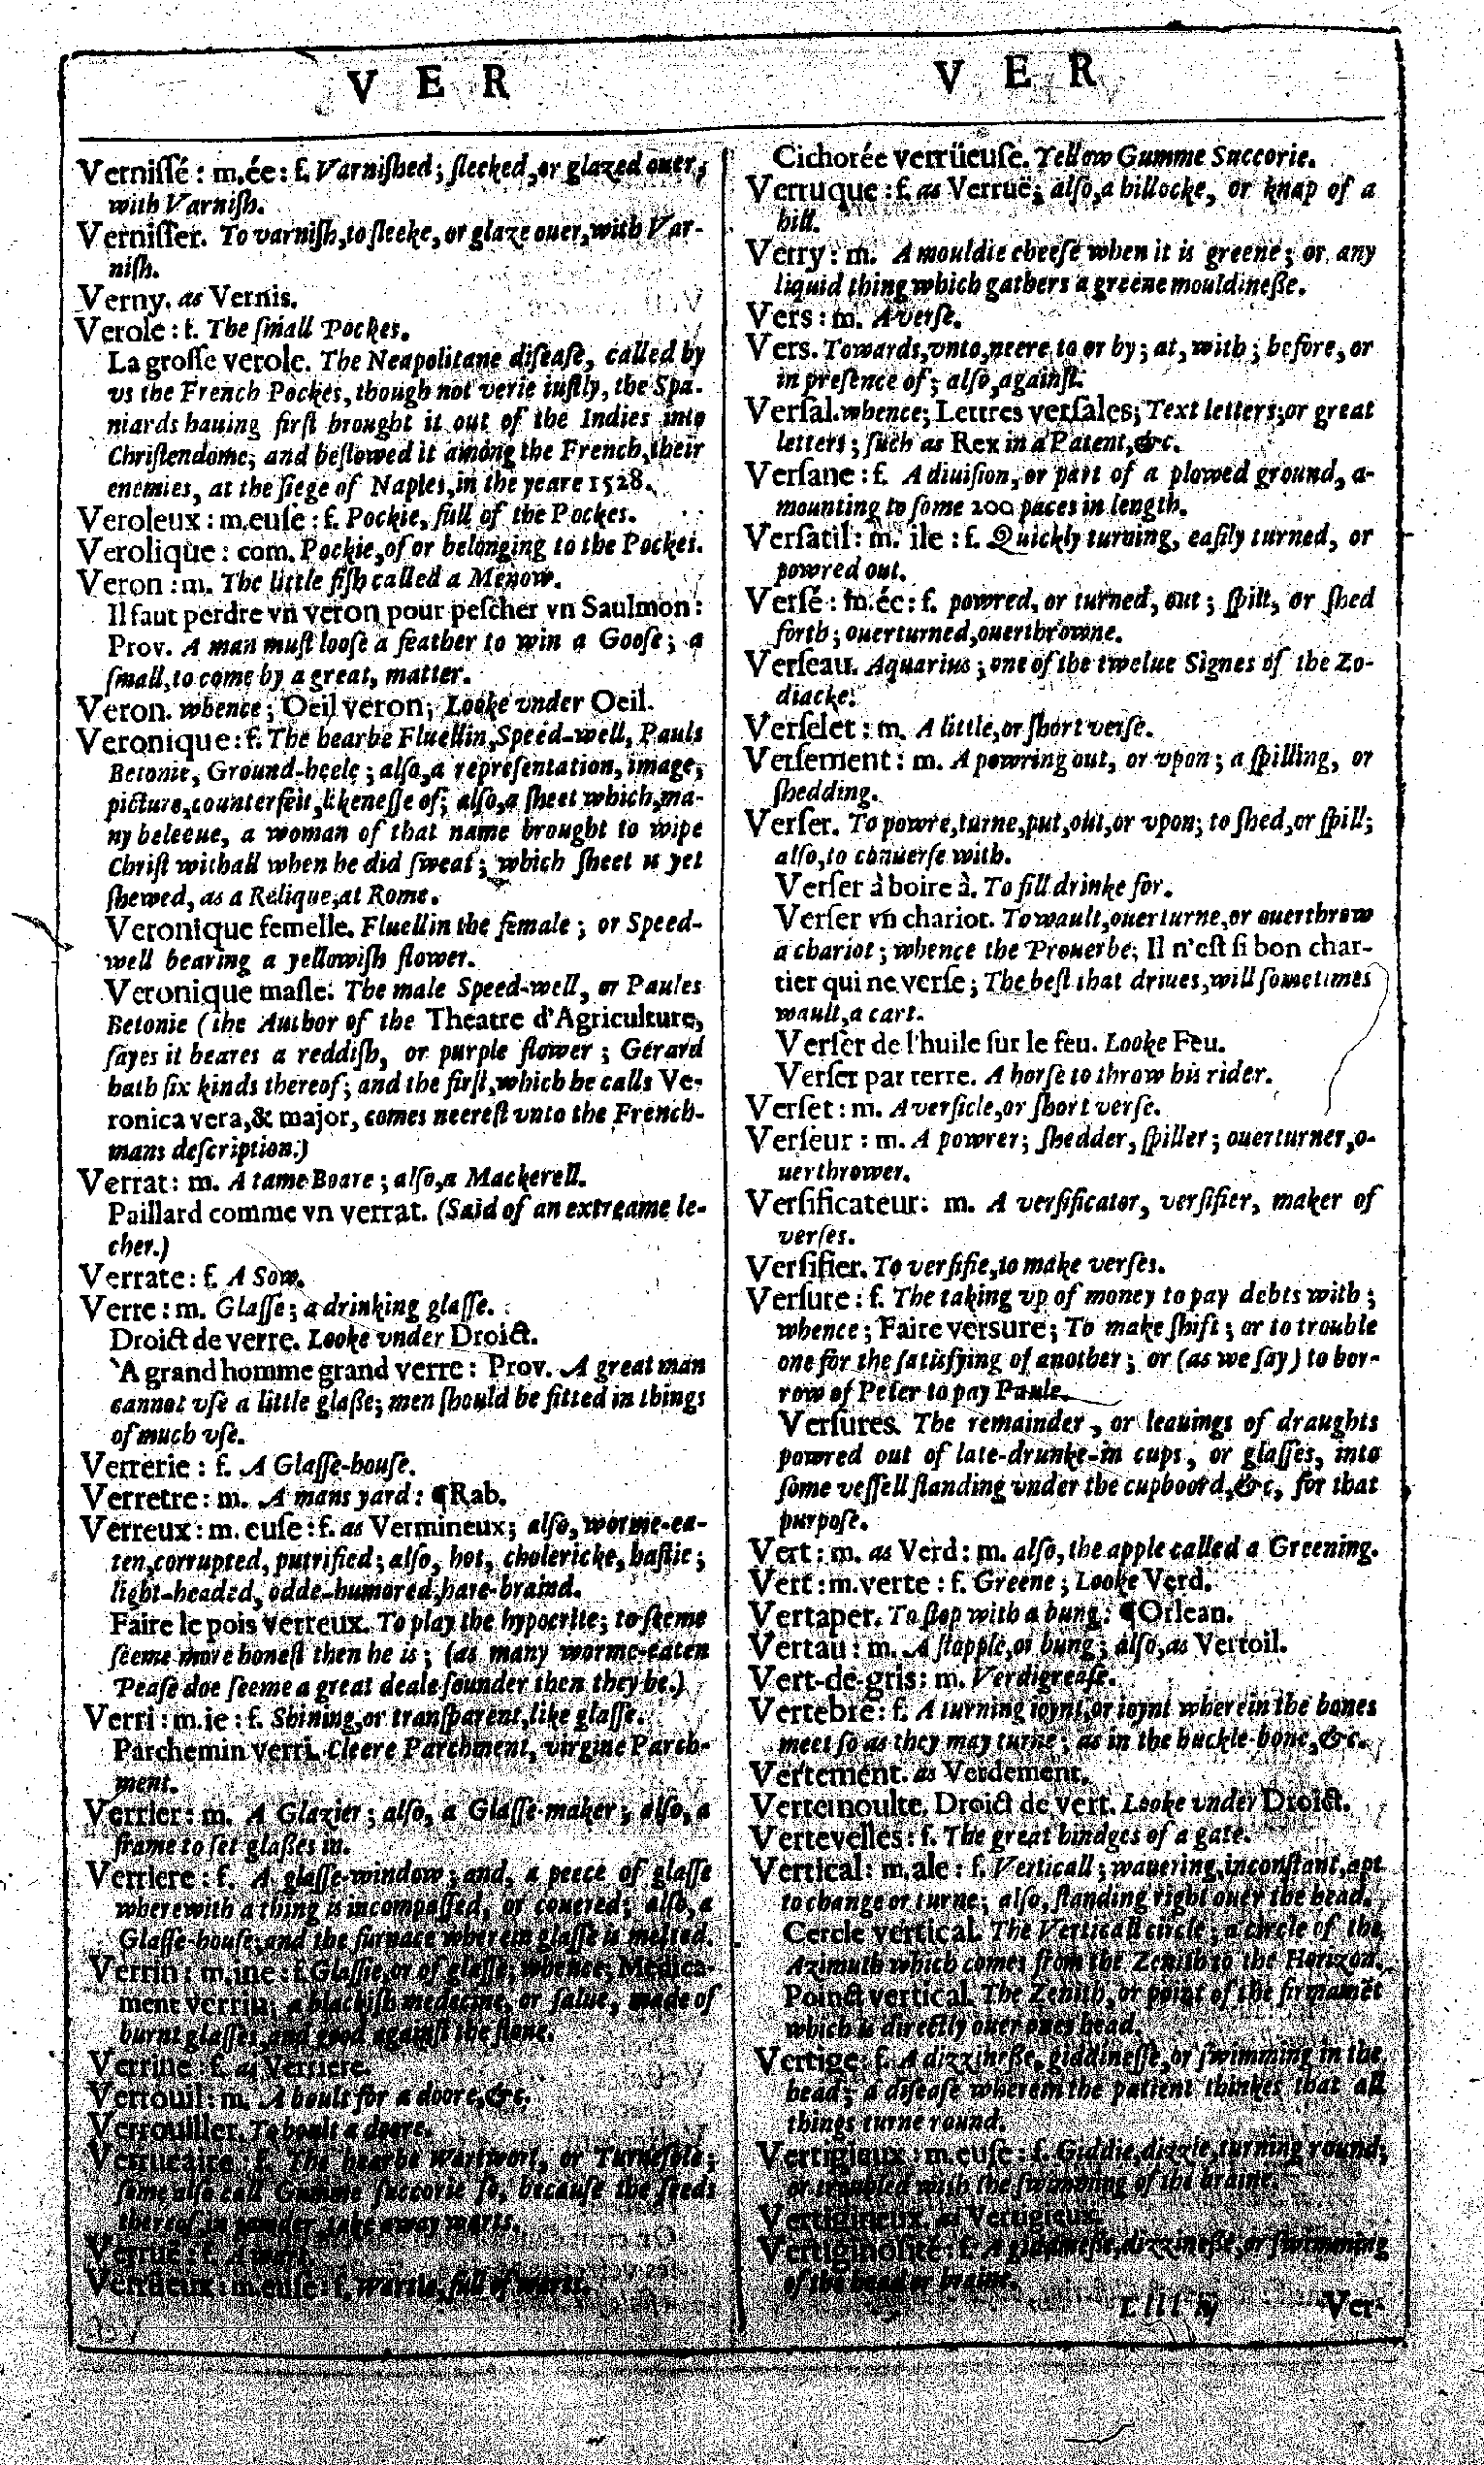 VER
Vernissé: m.ée: f. Varnished; sleeked, or glazed ouer,
with Varnish.
Vernisser. To varnish, to sleeke, or glaze ouer, with Var-
nish.
Verny. as Vernis.
Verole: f. The small Pockes.
La grosse verole. The Neapolitane disease, called by
vs the French Pockes, though not verie iustly, the Spa-
niards hauing first brought it out of the Indies into
Christendome; and bestowed it among the French, their
enemies, at the siege of Naples, in the yeare 1528.
Veroleux: m.euse: f. Pockie, full of the Pockes.
Verolique: com. Pockie, of or belonging to the Pockes.
Veron: m. The little fish called a Menow.
Il faut perdre vn veron pour pescher vn Saulmon:
Prov. A man must loose a feather to win a Goose; a
small, to come by a great, matter.
Veron. whence; Oeil veron; Looke vnder Oeil.
Veronique: f. The hearbe Fluellin, Speed-well, Pauls
Betonie, Ground-heele; also, a representation, image,
picture, counterfeit, likenesse of; also, a sheet which, ma-
ny beleeue, a woman of that name brought to wipe
Christ withall when he did sweat; which sheet is yet
shewed, as a Relique, at Rome.
Veronique femelle. Fluellin the female; or Speed-
well bearing a yellowish flower.
Veronique masle. The male Speed-well, or Paules
Betonie (the Author of the Theatre d'Agriculture,
sayes it beares a reddish, or purple flower; Gerard
hath six kinds thereof; and the first, which he calls Ve-
ronica vera, & major, comes neerest vnto the French-
mans description.)
Verrat: m. A tame Boare; also, a Mackerell.
Paillard comme vn verrat. (Said of an extreame le-
cher.)
Verrate: f. A Sow.
Verre: m. Glasse; a drinking glasse.
Droict de verre. Looke vnder Droict.
`A grand homme grand verre: Prov. A great man
cannot vse a little glasse; men should be fitted in things
of much vse.
Verrerie: f. A Glasse-house.
Verretre: m. A mans yard: ¶Rab.
Verreux: m. euse: f. as Vermineux; also, worme-ea-
ten, corrupted, putrified; also, hot, cholericke, hastie;
light-headed, odde-humored, hare-braind.
Faire le pois verreux. To play the hypocrite; to seeme
seeme more honest then he is; (as many worme-eaten
Pease doe seeme a great deale sounder then they be.)
Verri: m.ie: f. Shining, or transparent, like glasse.
Parchemin verri. Cleere Parchment, virgine Parch-
ment.
Verrier: m. A Glazier; also, a Glasse-maker; also, a
frame to set glasses in.
Verriere: f. A glasse-window; and, a peece of glasse
wherewith a thing is incompassed, or couered; also, a
Glasse-house; and the furnace wherein glasse is melted.
Verrin: m.ine: f. Glassie, or of glasse; whence; Medica-
ment verrin; a blackish medecine, or salue, made of
burnt glasses, and good against the stone.
Verrine: f. as Verriere.
Verrouil: m. A boult for a doore, &c.
Verrouiller. To boult a doore.
Verrucaire: f. The hearbe Wartwort, or Turnesole;
some also call Gumme succorie so, because the seeds
thereof, in pouder, take away warts.
Verruë: f. A wart.
Verrüeux: m.euse: f. Wartie, full of warts.
VER
Cichorée verrüeuse. Yellow Gumme Succorie.
Verruque: f. as Verruë; also, a hillocke, or knap of a
hill.
Verry: m. A mouldie cheese when it is greene; or any
liquid thing which gathers a greene mouldinesse.
Vers: m. A verse.
Vers. Towards, vnto, neere to or by; at, with; before, or
in presence of; also, against.
Versal. whence; Lettres versales; Text letters; or great
letters; such as Rex in a Patent, &c.
Versane: f. A diuision, or part of a plowed ground, a-
mounting to some 200 paces in length.
Versatil: m. ile: f. Quickly turning, easily turned, or
powred out.
Versé: m.ée: f. powred, or turned, out; spilt, or shed
forth; ouerturned, ouerthrowne.
Verseau. Aquarius; one of the twelue Signes of the Zo-
diacke.
Verselet: m. A little, or short verse.
Versement: m. A powring out, or vpon; a spilling, or
shedding.
Verser. To powre, turne, put, out, or vpon; to shed, or spill;
also, to conuerse with.
Verser à boire à. To fill drinke for.
Verser vn chariot. To wault, ouerturne, or ouerthrow
a chariot; whence the Prouerbe; Il n'est si bon char-
tier qui ne verse; The best that driues, will sometimes
wault, a cart.
Verser de l'huile sur le feu. Looke Feu.
Verser par terre. A horse to throw his rider.
Verset: m. A versicle, or short verse.
Verseur: m. A powrer; shedder, spiller; ouerturner, o-
uerthrower.
Versificateur: m. A versificator, versifier, maker of
verses.
Versifier. To versifie, to make verses.
Versure: f. The taking vp of money to pay debts with;
whence; Faire versure; To make shift; or to trouble
one for the satisfying of another; or (as we say) to bor-
row of Peter to pay Paule.
Versures. The remainder, or leauings of draughts
powred out of late-drunke-in cups, or glasses, into
some vessell standing vnder the cupboord, &c, for that
purpose.
Vert: m. as Verd: m. also, the apple called a Greening.
Vert: m. verte: f. Greene; Looke Verd.
Vertaper. To stop with a bung: ¶Orlean.
Vertau: m. A stopple, or bung; also, as Vertoil.
Vert-de-gris: m. Verdigrease.
Vertebre: f. A turning ioynt, or ioynt wherein the bones
meet so as they may turne; as in the buckle-bone, &c.
Vertement. as Verdement.
Vertemoulte. Droict de vert. Looke vnder Droict.
Vertevelles: f. The great hindges of a gate.
Vertical: m.ale: f. Verticall; wauering, inconstant, apt
to change or turne; also, standing right ouer the head.
Cercle vertical. The Verticall circle; a circle of the
Azimuth which comes from the Zenith to the Horizon.
Poinct vertical. The Zenith, or point of the firmamēt
which is directly ouer ones head.
Vertige: f. A dizzinesse, giddinesse, or swimming in the
head; a disease wherein the patient thinkes that all
things turne round.
Vertigieux: m.euse: f. Giddie, dizzie, turning round;
or troubled with the swimming of the braine.
Vertigineux. as Vertigieux.
Vertiginosité: f. A giddinesse, dizzinesse, or swimming
of the head or braine.
Llll ij Ver-